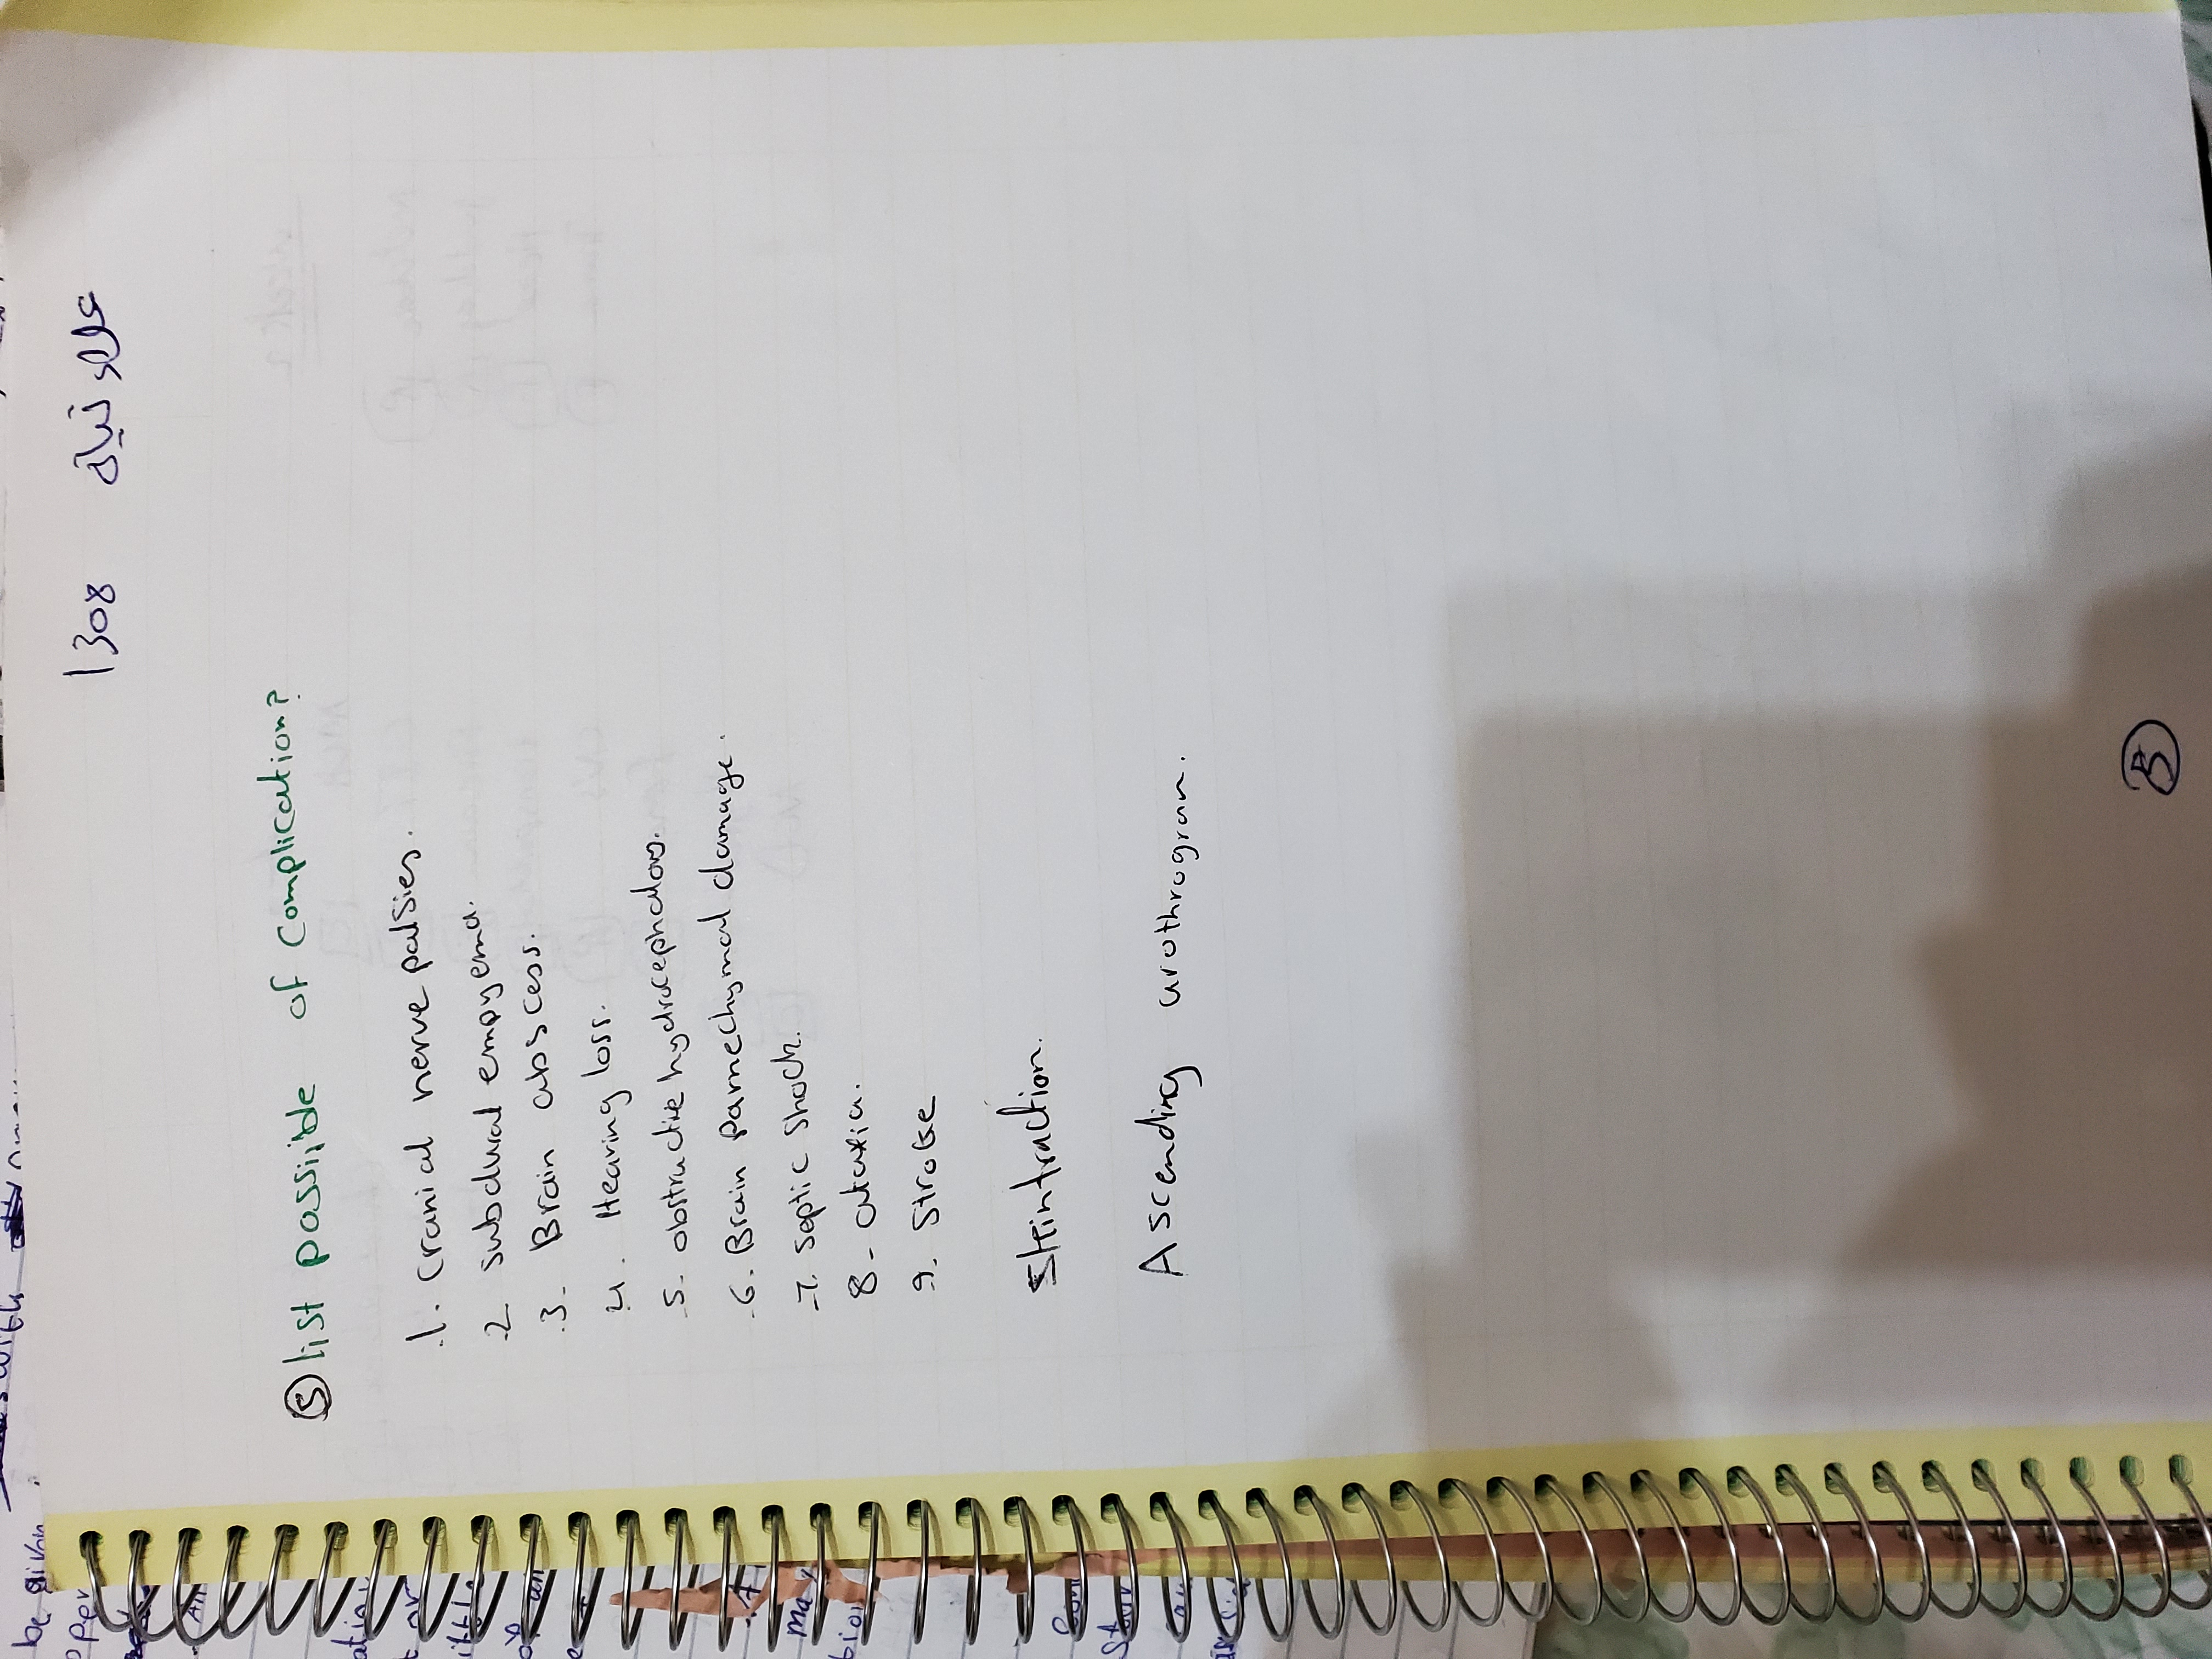 1308 علاء نبيل
⑤ list possible of complication?
.1. Cranial nerve palsies.
.2 subdural empyema.
.3- Brain abscess.
.4. Hearing loss.
.5- obstructive hydrocephalous.
.6. Brain parnechymal damage.
.7. septic shock.
8- ataxia.
.9. Stroke
Ascending urothrogram.
⑤
be given
oper